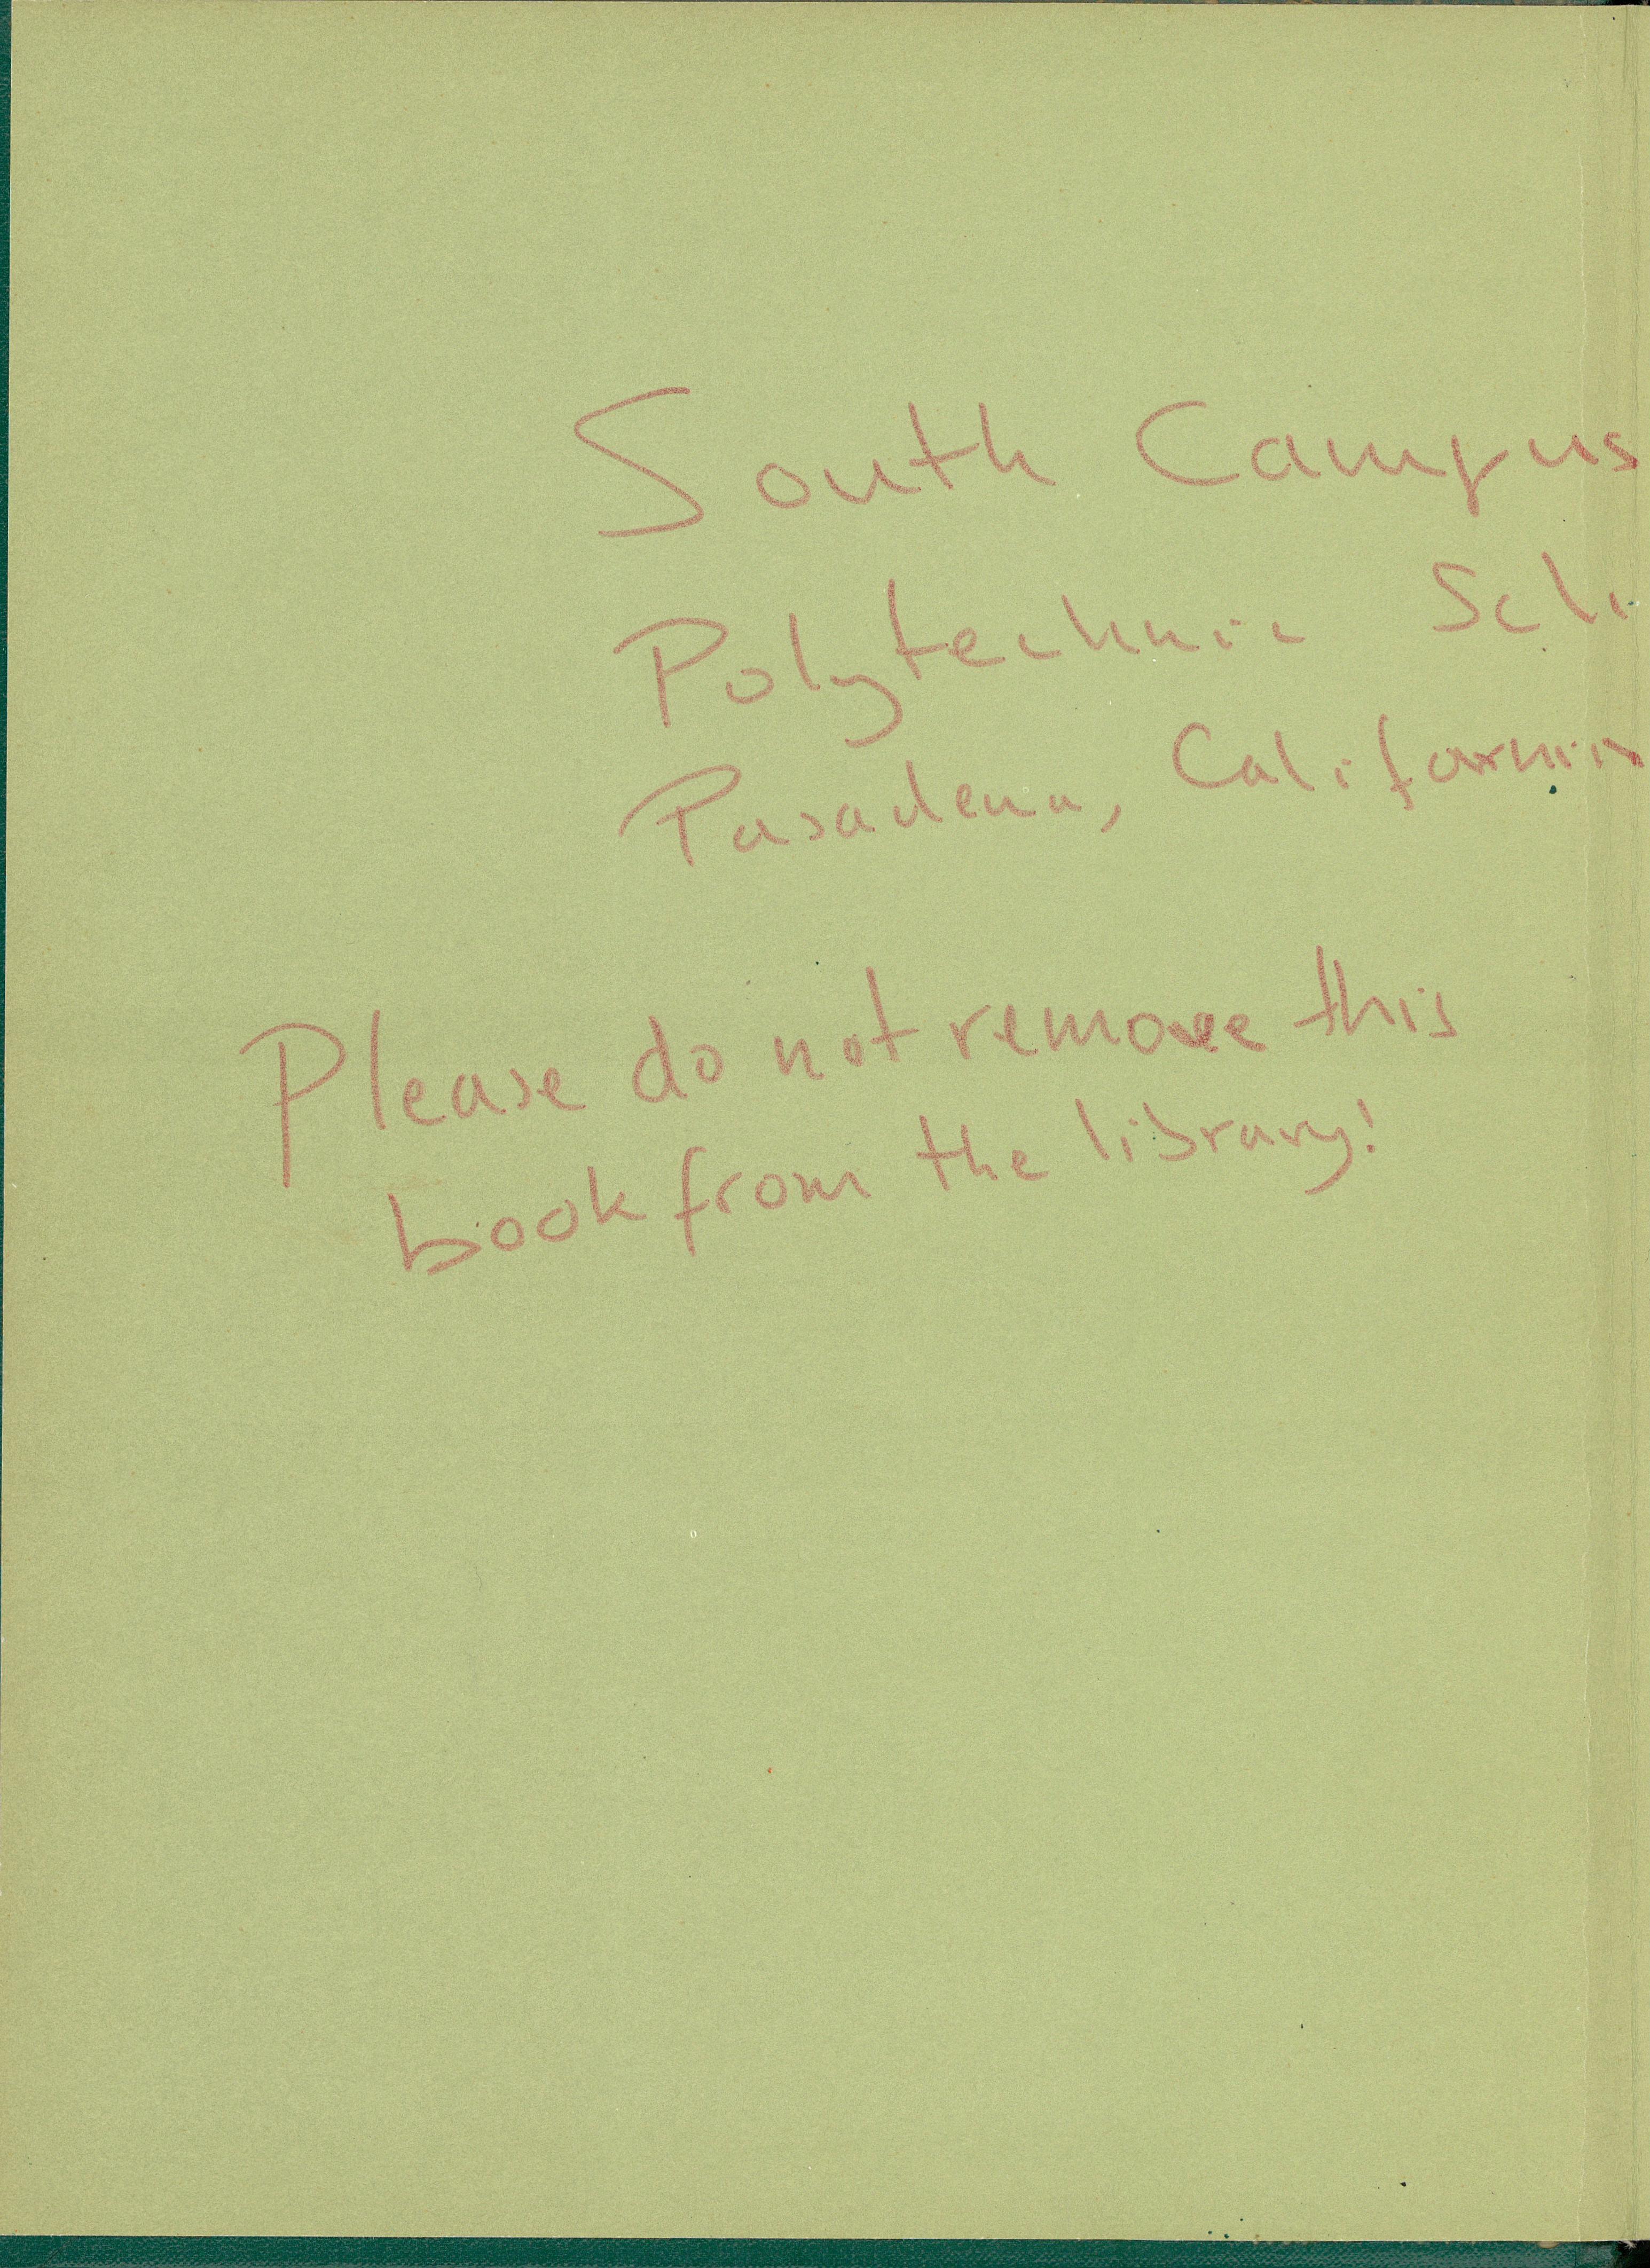 South Campus
Polytechnic Sch
Pasadena, California
Please do not remove this
book from the library!